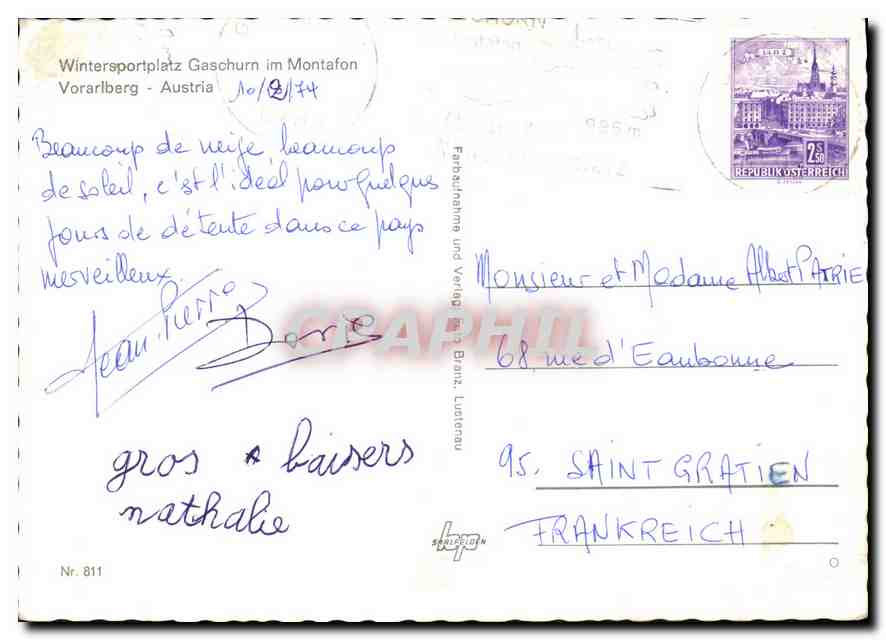 Wintersportplatz Gaschurn im Montafon
Vorarlberg - Austria 10/2/74
Beaucoup de neige, beaucoup
de soleil, c'est l'idéal pour quelques
jours de détente dans ce pays
merveilleux.
Jean-Pierre
gros baisers
nathalie
Nr. 811
Farbaufnahme und Verlag Branz, Lustenau
CPAPHIL
hps
SAALFELDEN
2S50
REPUBLIK ÖSTERREICH
Monsieur et Madame Albert PATRIE
68, rue d'Eaubonne
95. SAINT GRATIEN
FRANKREICH